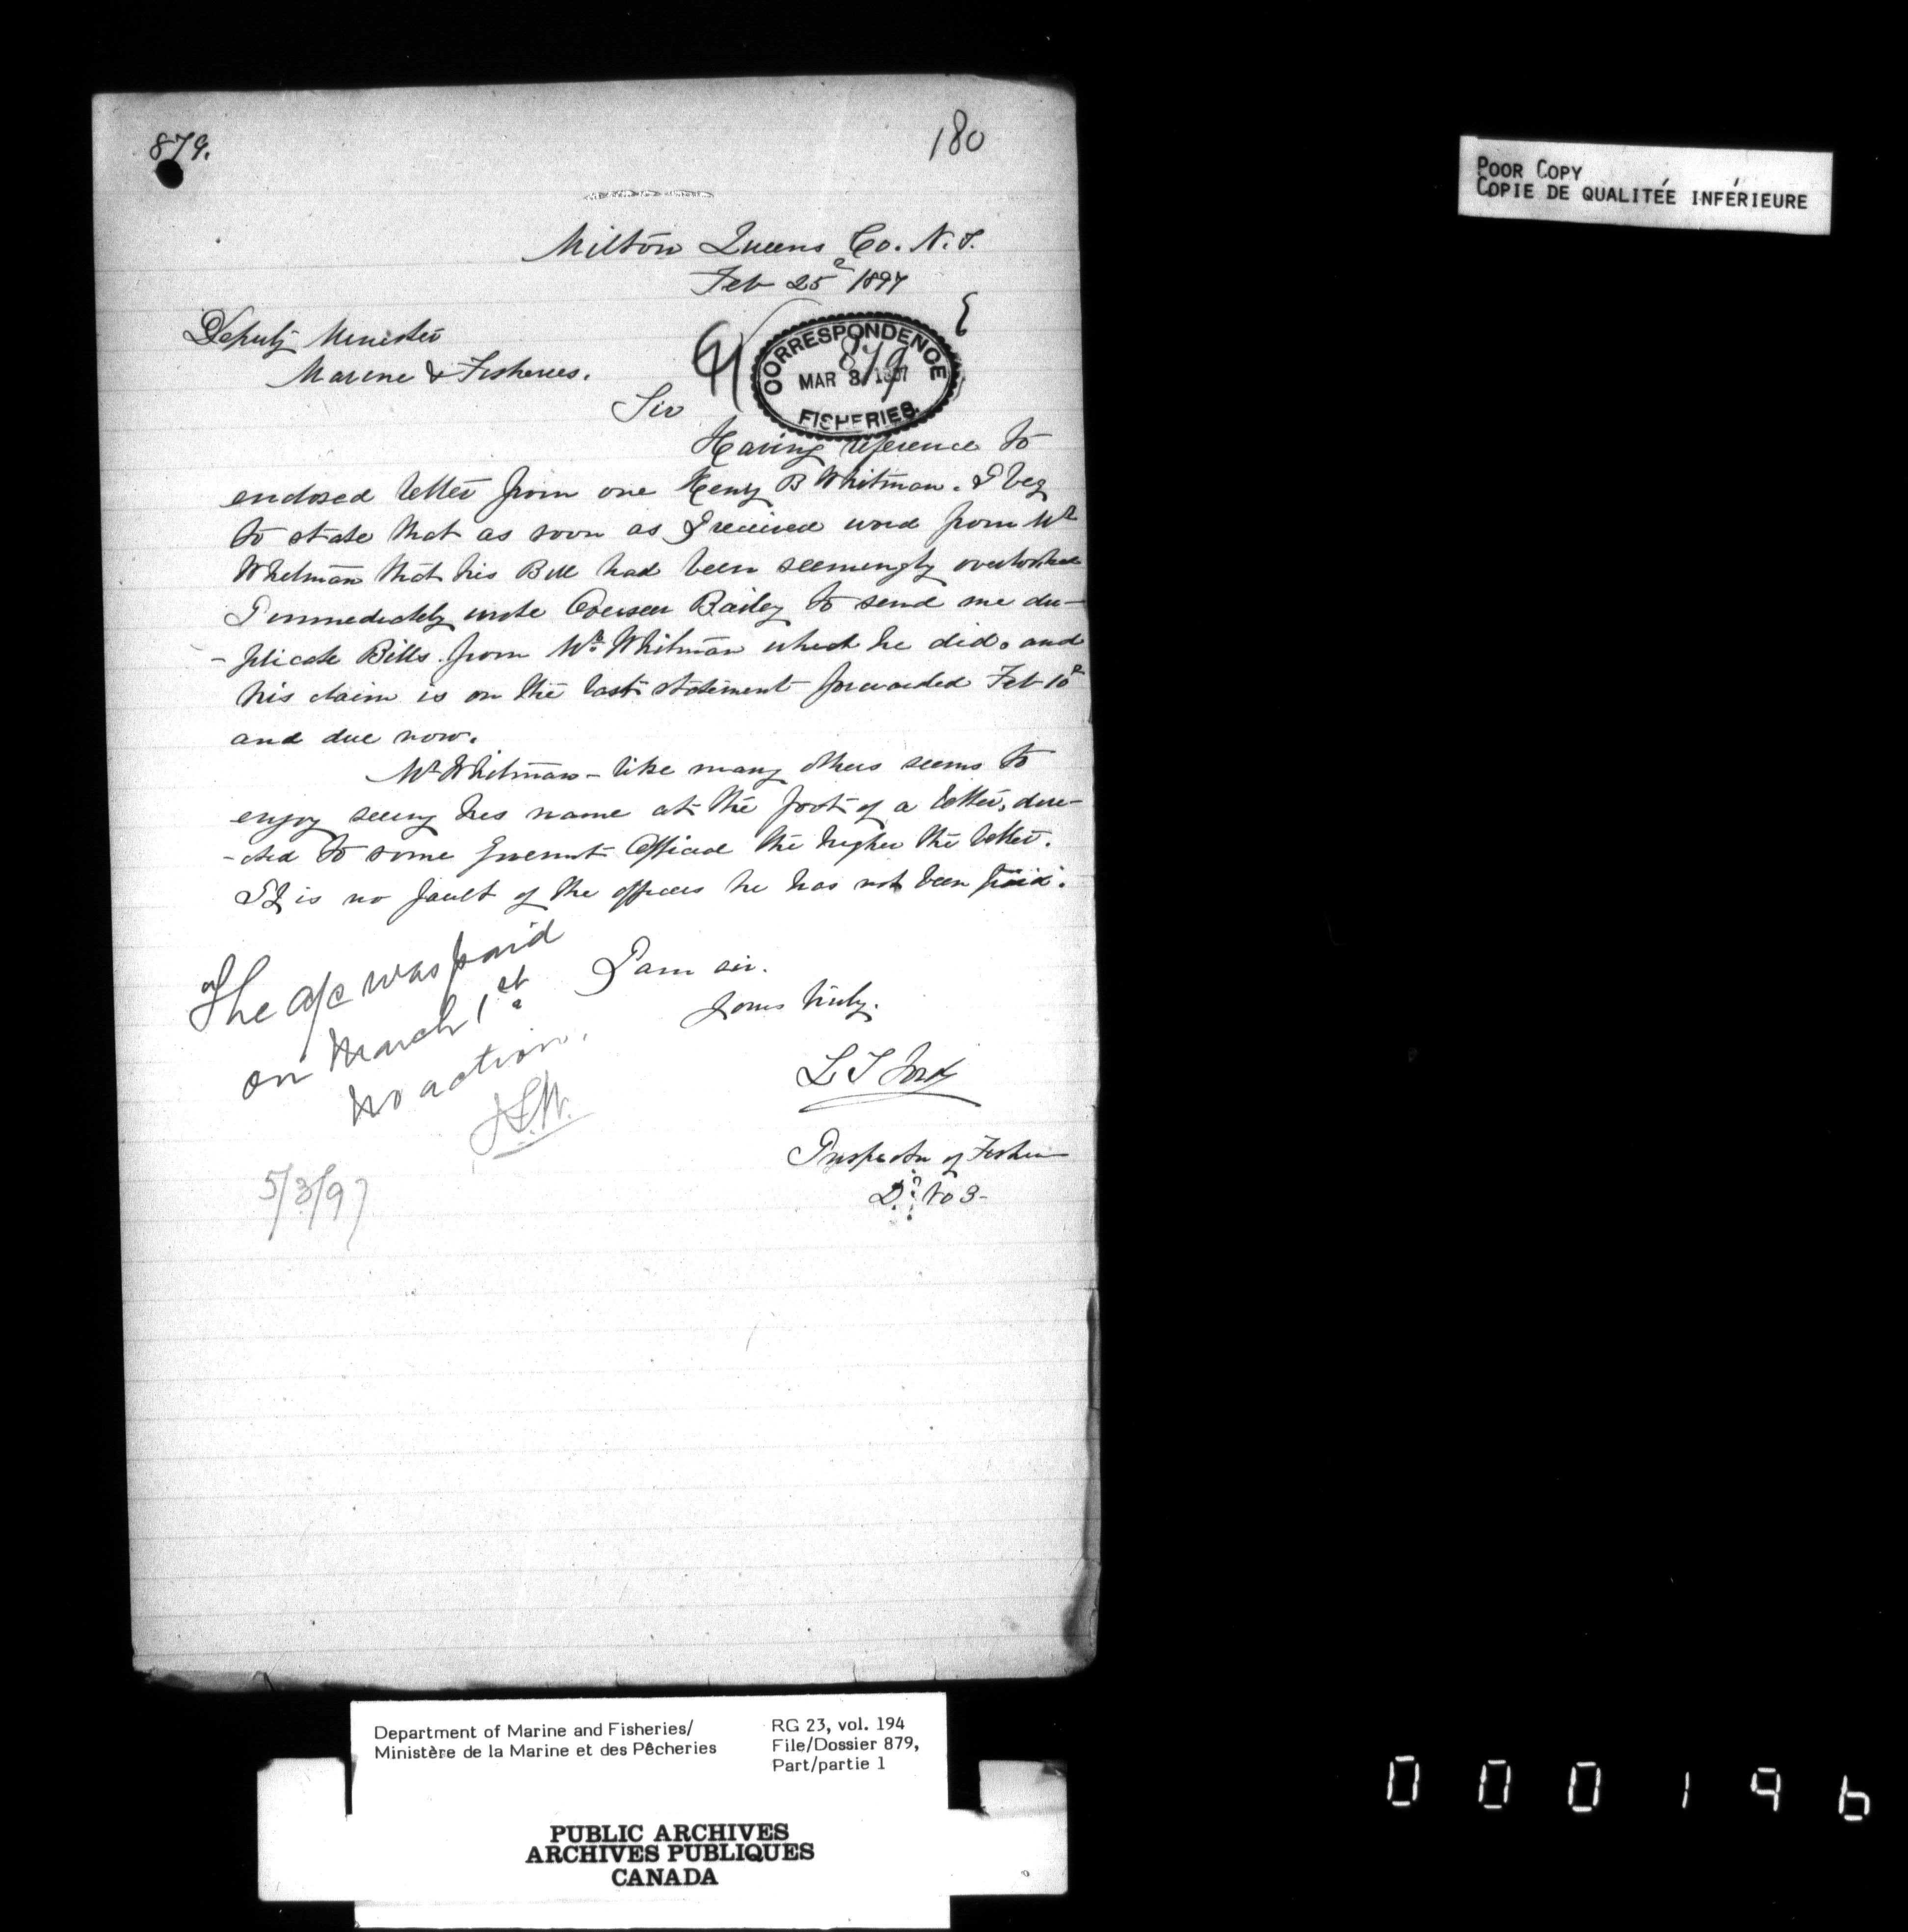 879.
180
Milton Queens Co. N.S.
Feb 25 1897
Deputy Minister
Marine & Fisheries.
CORRESPONDENCE
879
MAR 3 1897
FISHERIES.
Sir
Having reference to
enclosed letter from one Henry B Whitman. I beg
to state that as soon as I received word from Mr
Whitman that his Bill had been seemingly overlooked
I immediately wrote Overseer Bailey to send me du-
-plicate Bills from Mr Whitman which he did. and
his claim is on the last statement forwarded Feb 10
and due now.
Mr Whitman - like many others seems to
enjoy seeing his name at the foot of a letter, dire-
-cted to some Goverment Official the higher the better.
It is no fault of the officers he has not been paid.
I am sir.
Yours truly.
L S Ford
Inspector of Fisheries
D. No 3-
The a/c was paid
on March 1st
No action.
5/3/97
POOR COPY
COPIE DE QUALITÉE INFÉRIEURE
Department of Marine and Fisheries/
Ministère de la Marine et des Pêcheries
RG 23, vol. 194
File/Dossier 879,
Part/partie 1
PUBLIC ARCHIVES
ARCHIVES PUBLIQUES
CANADA
000196